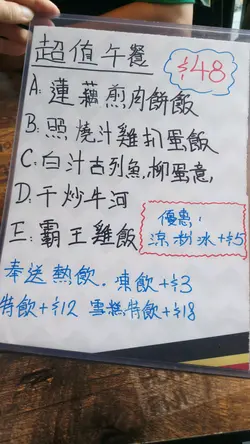 超值午餐 $48
A: 蓮藕煎肉餅飯
B: 照燒汁雞扒蛋飯
C: 白汁古列魚柳蛋意
D: 干炒牛河
E: 霸王雞飯
優惠:
涼粉冰+$5
奉送熱飲. 凍飲+$3
特飲+$12 雪糕特飲+$18